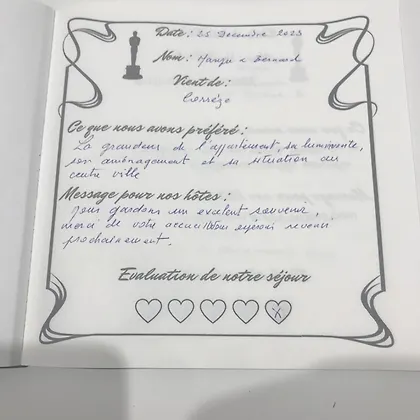 Date : 25 Decembre 2023
Nom : & Bernard
Vient de :
Corrèze
Ce que nous avons préféré :
La grandeur de l'appartement, sa luminosité,
son aménagement et sa situation au
centre ville
Message pour nos hôtes :
nous gardons un excellent souvenir,
merci de votre accueil revenir
prochainement.
Evaluation de notre séjour
X